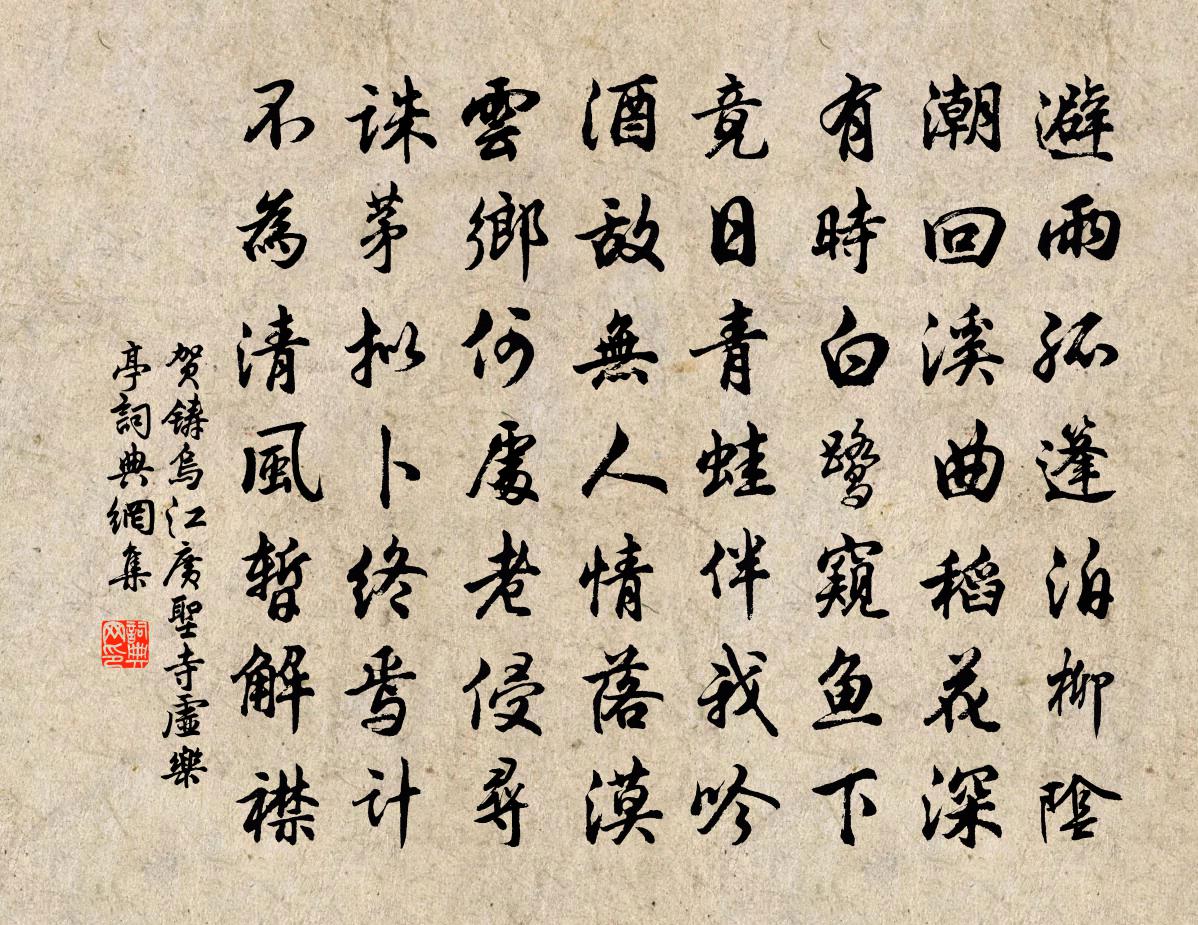 避雨孤蓬泊柳陰
潮回溪曲稻花深
有時白鷺窺魚下
竟日青蛙伴我吟
酒敵無人情落漠
雲鄉何處老侵尋
誅茅擬卜終焉計
不為清風暫解襟
賀鑄烏江廣聖寺虛樂
亭詞典網集
詞典
网印